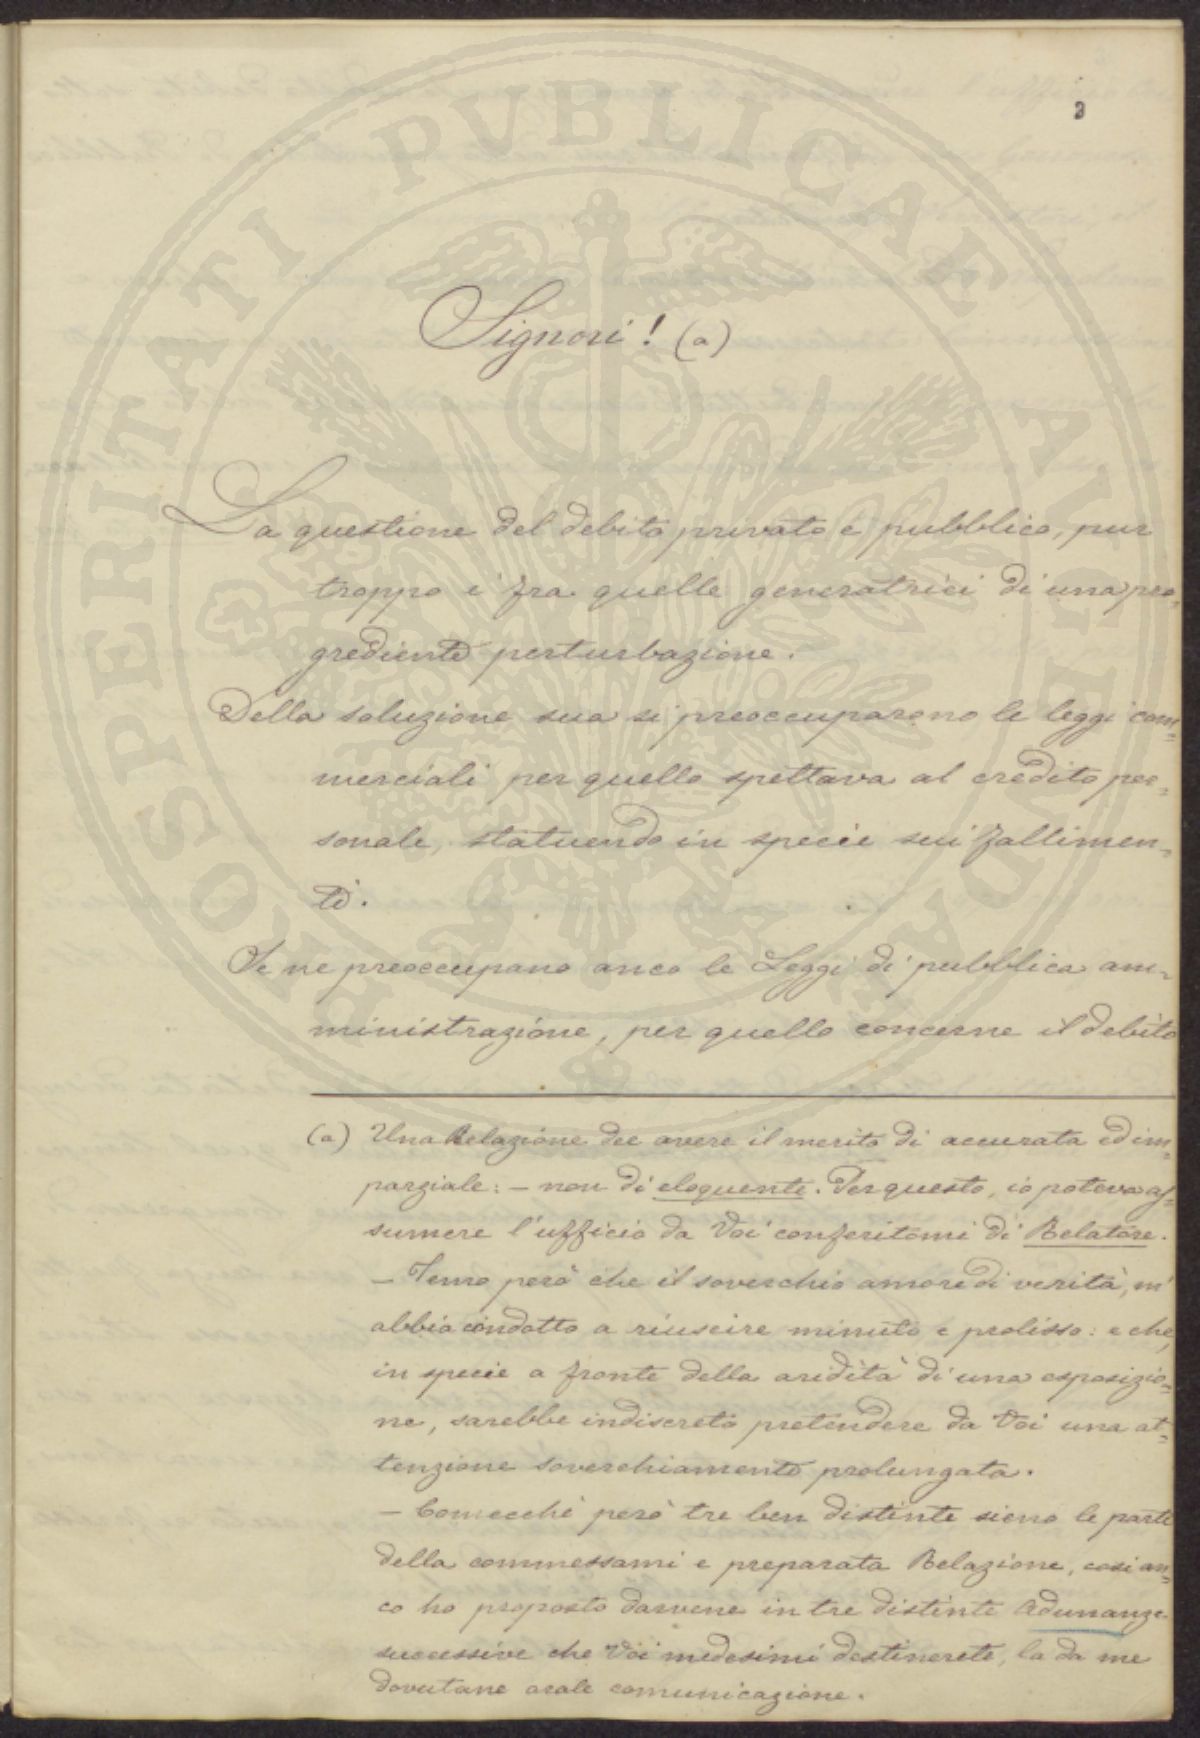 3
Signori! (a)
La questione del debito privato e pubblico, pur
troppo è fra quelle generatrici di una pro=
grediente perturbazione.
Della soluzione sua si preoccuparono le leggi com=
merciali per quello spettava al credito per=
sonale, statuendo in specie sui fallimen=
ti.
Se ne preoccupano anco le Leggi di pubblica am=
ministrazione, per quello concerne il debito
(a) Una Relazione dee avere il merito di accurata ed im=
parziale: – non di eloquente. Per questo, io poteva as=
sumere l'ufficio da Voi conferitomi di Relatore.
– Temo però che il soverchio amore di verità, m'
abbia condotto a riuscire minuto e prolisso: e che,
in specie a fronte della aridità di una esposizio=
ne, sarebbe indiscreto pretendere da Voi una at=
tenzione soverchiamente prolungata.
– Comecchè però tre ben distinte sieno le parti
della commessami e preparata Relazione, così an=
co ho proposto darvene in tre distinte Adunanze
successive che Voi medesimi destinerete, la da me
dovutane orale comunicazione.
PROSPERITATI PUBLICAE AUGENDAE